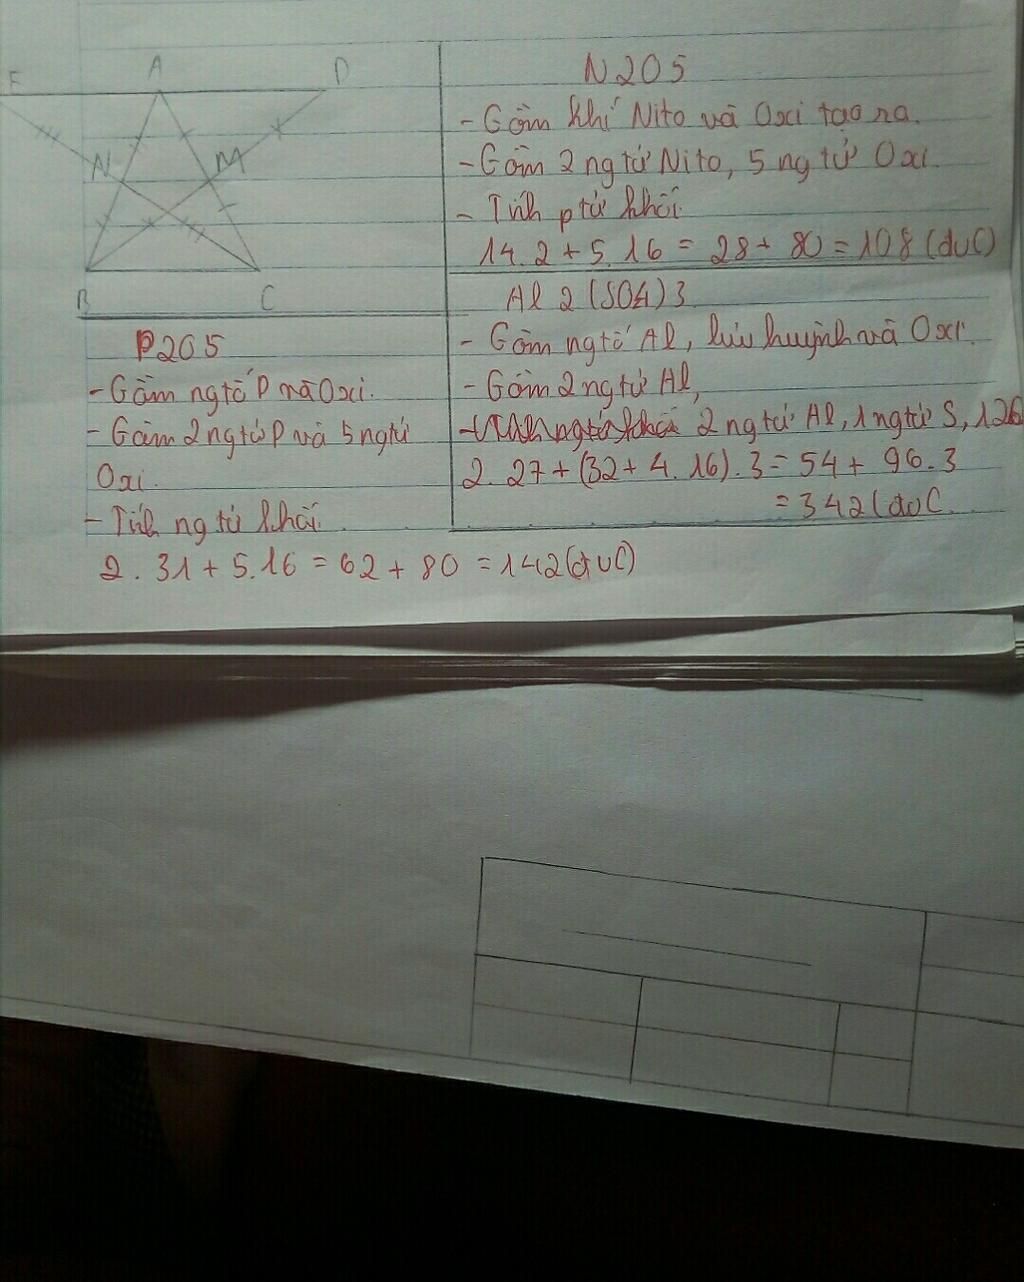 E A D
N M
B C
P2O5
- Gồm ng tố P và Oxi.
- Gồm 2 ng tử P và 5 ng tử
Oxi.
- Tính ng tử khối
2. 31 + 5.16 = 62 + 80 = 142 (đvC)
N2O5
- Gồm khí Nito và Oxi tạo ra.
- Gồm 2 ng tử Nito, 5 ng tử Oxi.
- Tính p tử khối
14. 2 + 5. 16 = 28 + 80 = 108 (đvC)
Al 2 (SO4) 3
- Gồm ng tố Al, lưu huỳnh và Oxi.
- Gồm 2 ng tử Al,
2 ng tử Al, 1 ng tử S, 12
2. 27 + (32 + 4. 16). 3 = 54 + 96. 3
= 342 (đvC